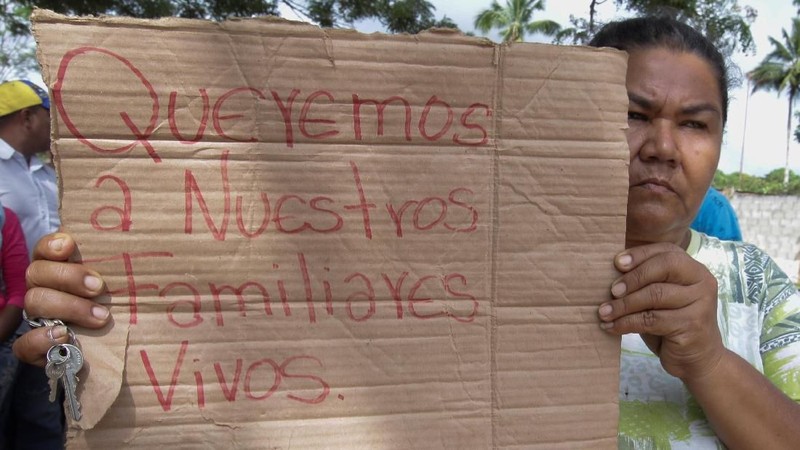 Queremos
a Nuestros
Familiares
Vivos.